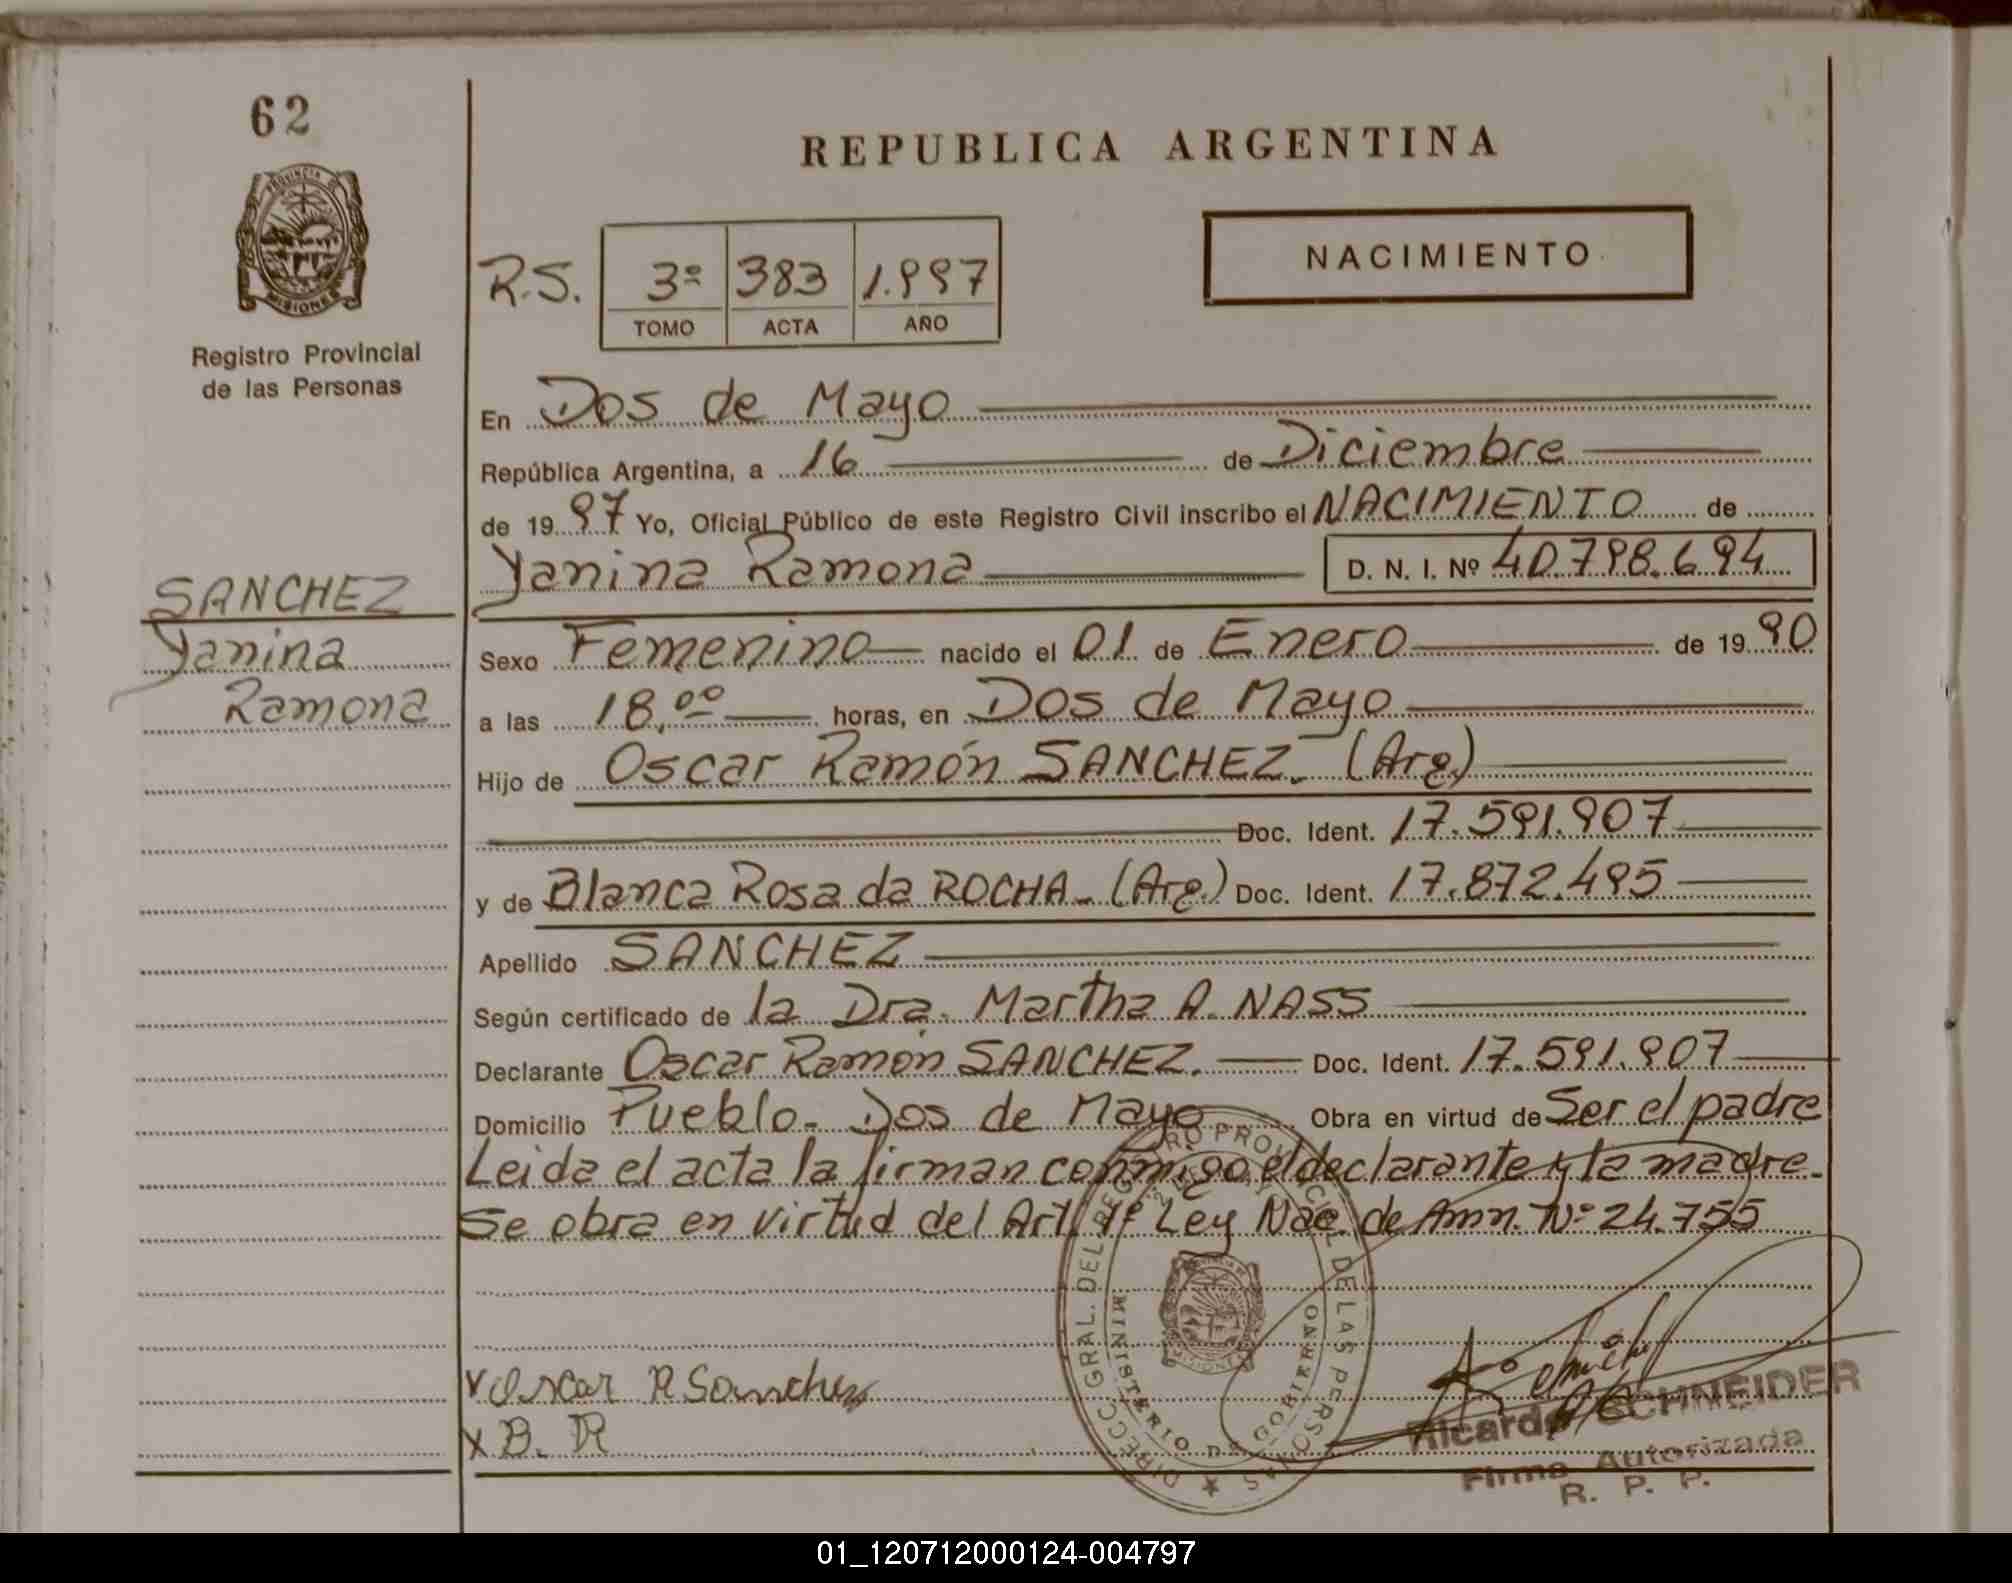 62
REPUBLICA ARGENTINA
PROVINCIA DE
MISIONES
Registro Provincial
de las Personas
R.S.
3º 383 1.997
TOMO ACTA AÑO
NACIMIENTO
En Dos de Mayo
República Argentina, a 16 de Diciembre
de 1997 Yo, Oficial Público de este Registro Civil inscribo el NACIMIENTO de
Yanina Ramona D. N. I. Nº 40.798.694
SANCHEZ
Yanina
Ramona
Sexo Femenino nacido el 01 de Enero de 1990
a las 18,ºº horas, en Dos de Mayo
Hijo de Oscar Ramón SANCHEZ.- (Arg.)
Doc. Ident. 17.591.907
y de Blanca Rosa da ROCHA.- (Arg.) Doc. Ident. 17.872.495
Apellido SANCHEZ
Según certificado de la Dra. Martha A. NASS
Declarante Oscar Ramón SANCHEZ. Doc. Ident. 17.591.907
Domicilio Pueblo.- Dos de Mayo Obra en virtud de Ser el padre
Leida el acta la firman conmigo el declarante y la madre.-
Se obra en virtud del Art. 1º Ley Nac. de Amn. Nº 24.755
DIRECC. GRAL. DEL REGISTRO PROVINCIAL DE LAS PERSONAS
MINISTERIO DE GOBIERNO
x Oscar R Sanchez
x B. R
Ricardo SCHNEIDER
Firma Autorizada
R. P. P.
01_120712000124-004797